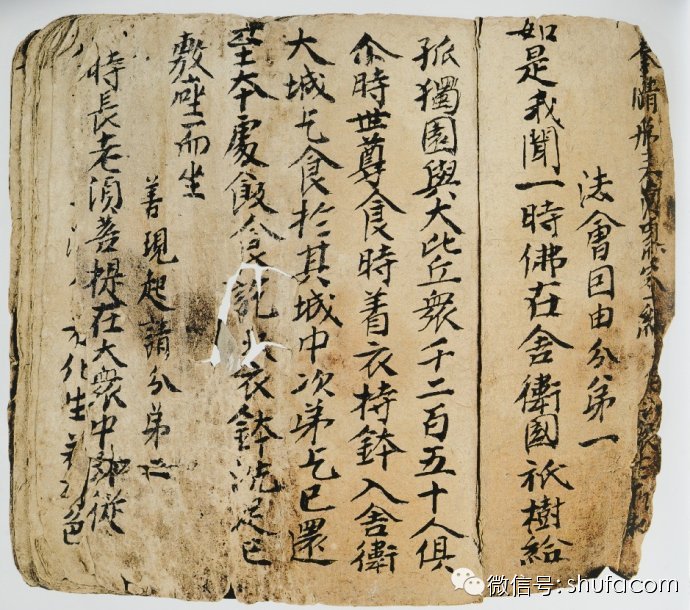 奉請第
法會因由分第一
如是我聞一時佛在舍衛國祇樹給
孤獨園與大比丘衆千二百五十人俱
尒時世尊食時着衣持鉢入舍衛
大城乞食於其城中次第乞已還
至本處飯食訖收衣鉢洗足已
敷座而坐
善現起請分第二
時長老須菩提在大衆中即從
化生 色
微信号: shufacom